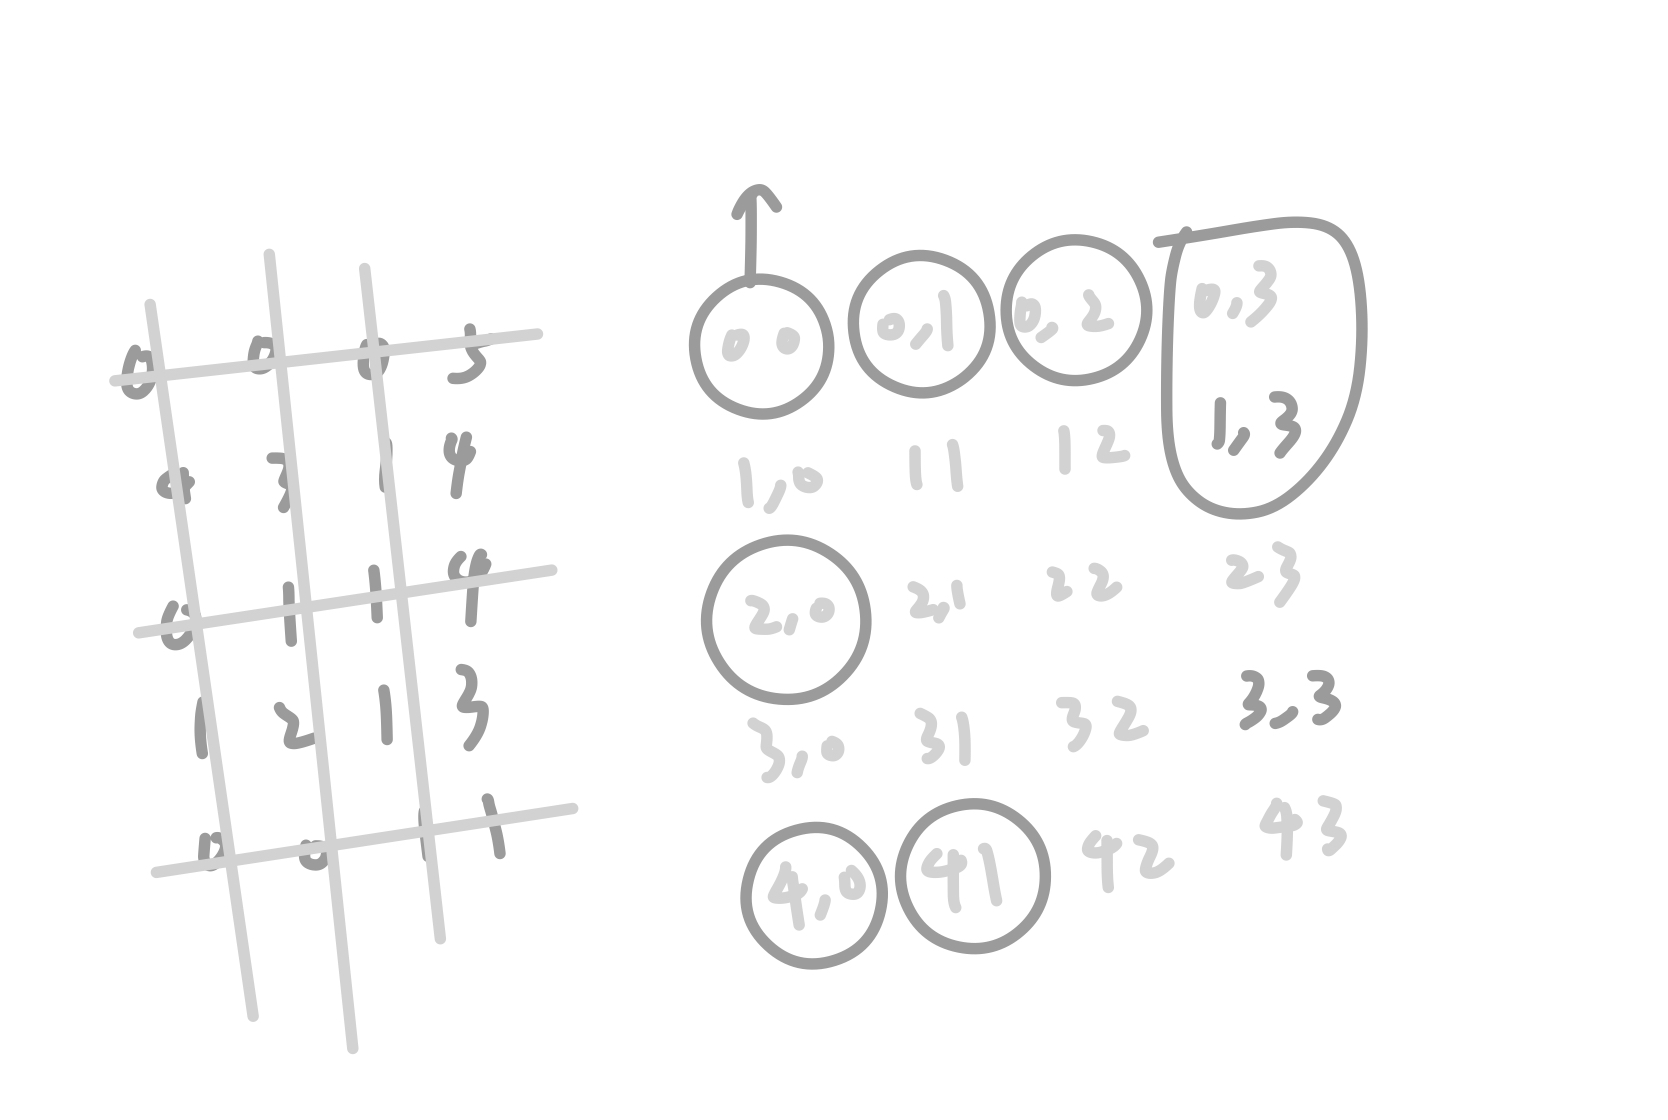 0 0 0 5
4 3 1 4
0 1 1 4
1 2 1 3
0 0 1 1
0 0 0,1 0,2 0,3
1,0 11 12 1,3
2,0 2,1 22 23
3,0 31 32 3,3
4,0 41 42 43